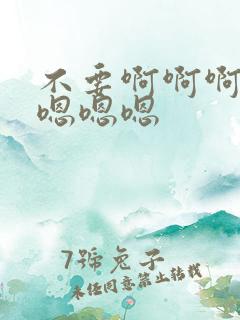 不要啊啊啊
嗯嗯嗯
7號兔子
未经同意禁止转载